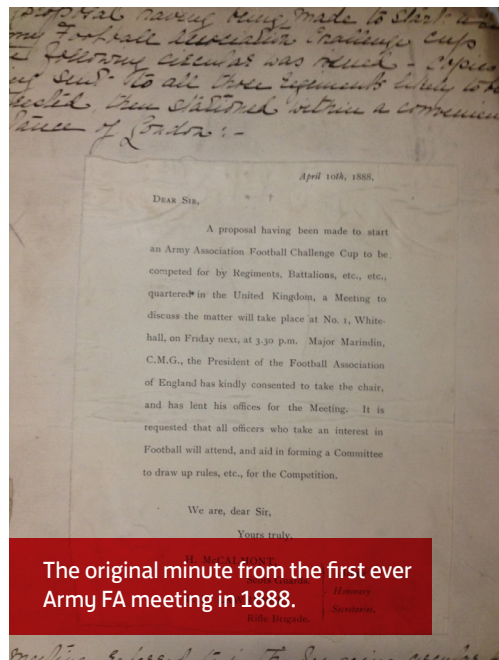 proposal having being made to start
my Football Association Challenge Cup
following circular was issued - copies
sent to all those Regiments likely to be
then stationed within a convenien
tance of London:-
April 10th, 1888.
DEAR SIR,
A proposal having been made to start
an Army Association Football Challenge Cup to be
competed for by Regiments, Battalions, etc., etc.,
quartered in the United Kingdom, a Meeting to
discuss the matter will take place at No. 1, White-
hall, on Friday next, at 3.30 p.m. Major Marindin,
C.M.G., the President of the Football Association
of England has kindly consented to take the chair,
and has lent his offices for the Meeting. It is
requested that all officers who take an interest in
Football will attend, and aid in forming a Committee
to draw up rules, etc., for the Competition.
We are, dear Sir,
Yours truly,
H. McCALMONT,
Scots Guards.
Honorary
Secretaries.
Rifle Brigade.
The original minute from the first ever
Army FA meeting in 1888.